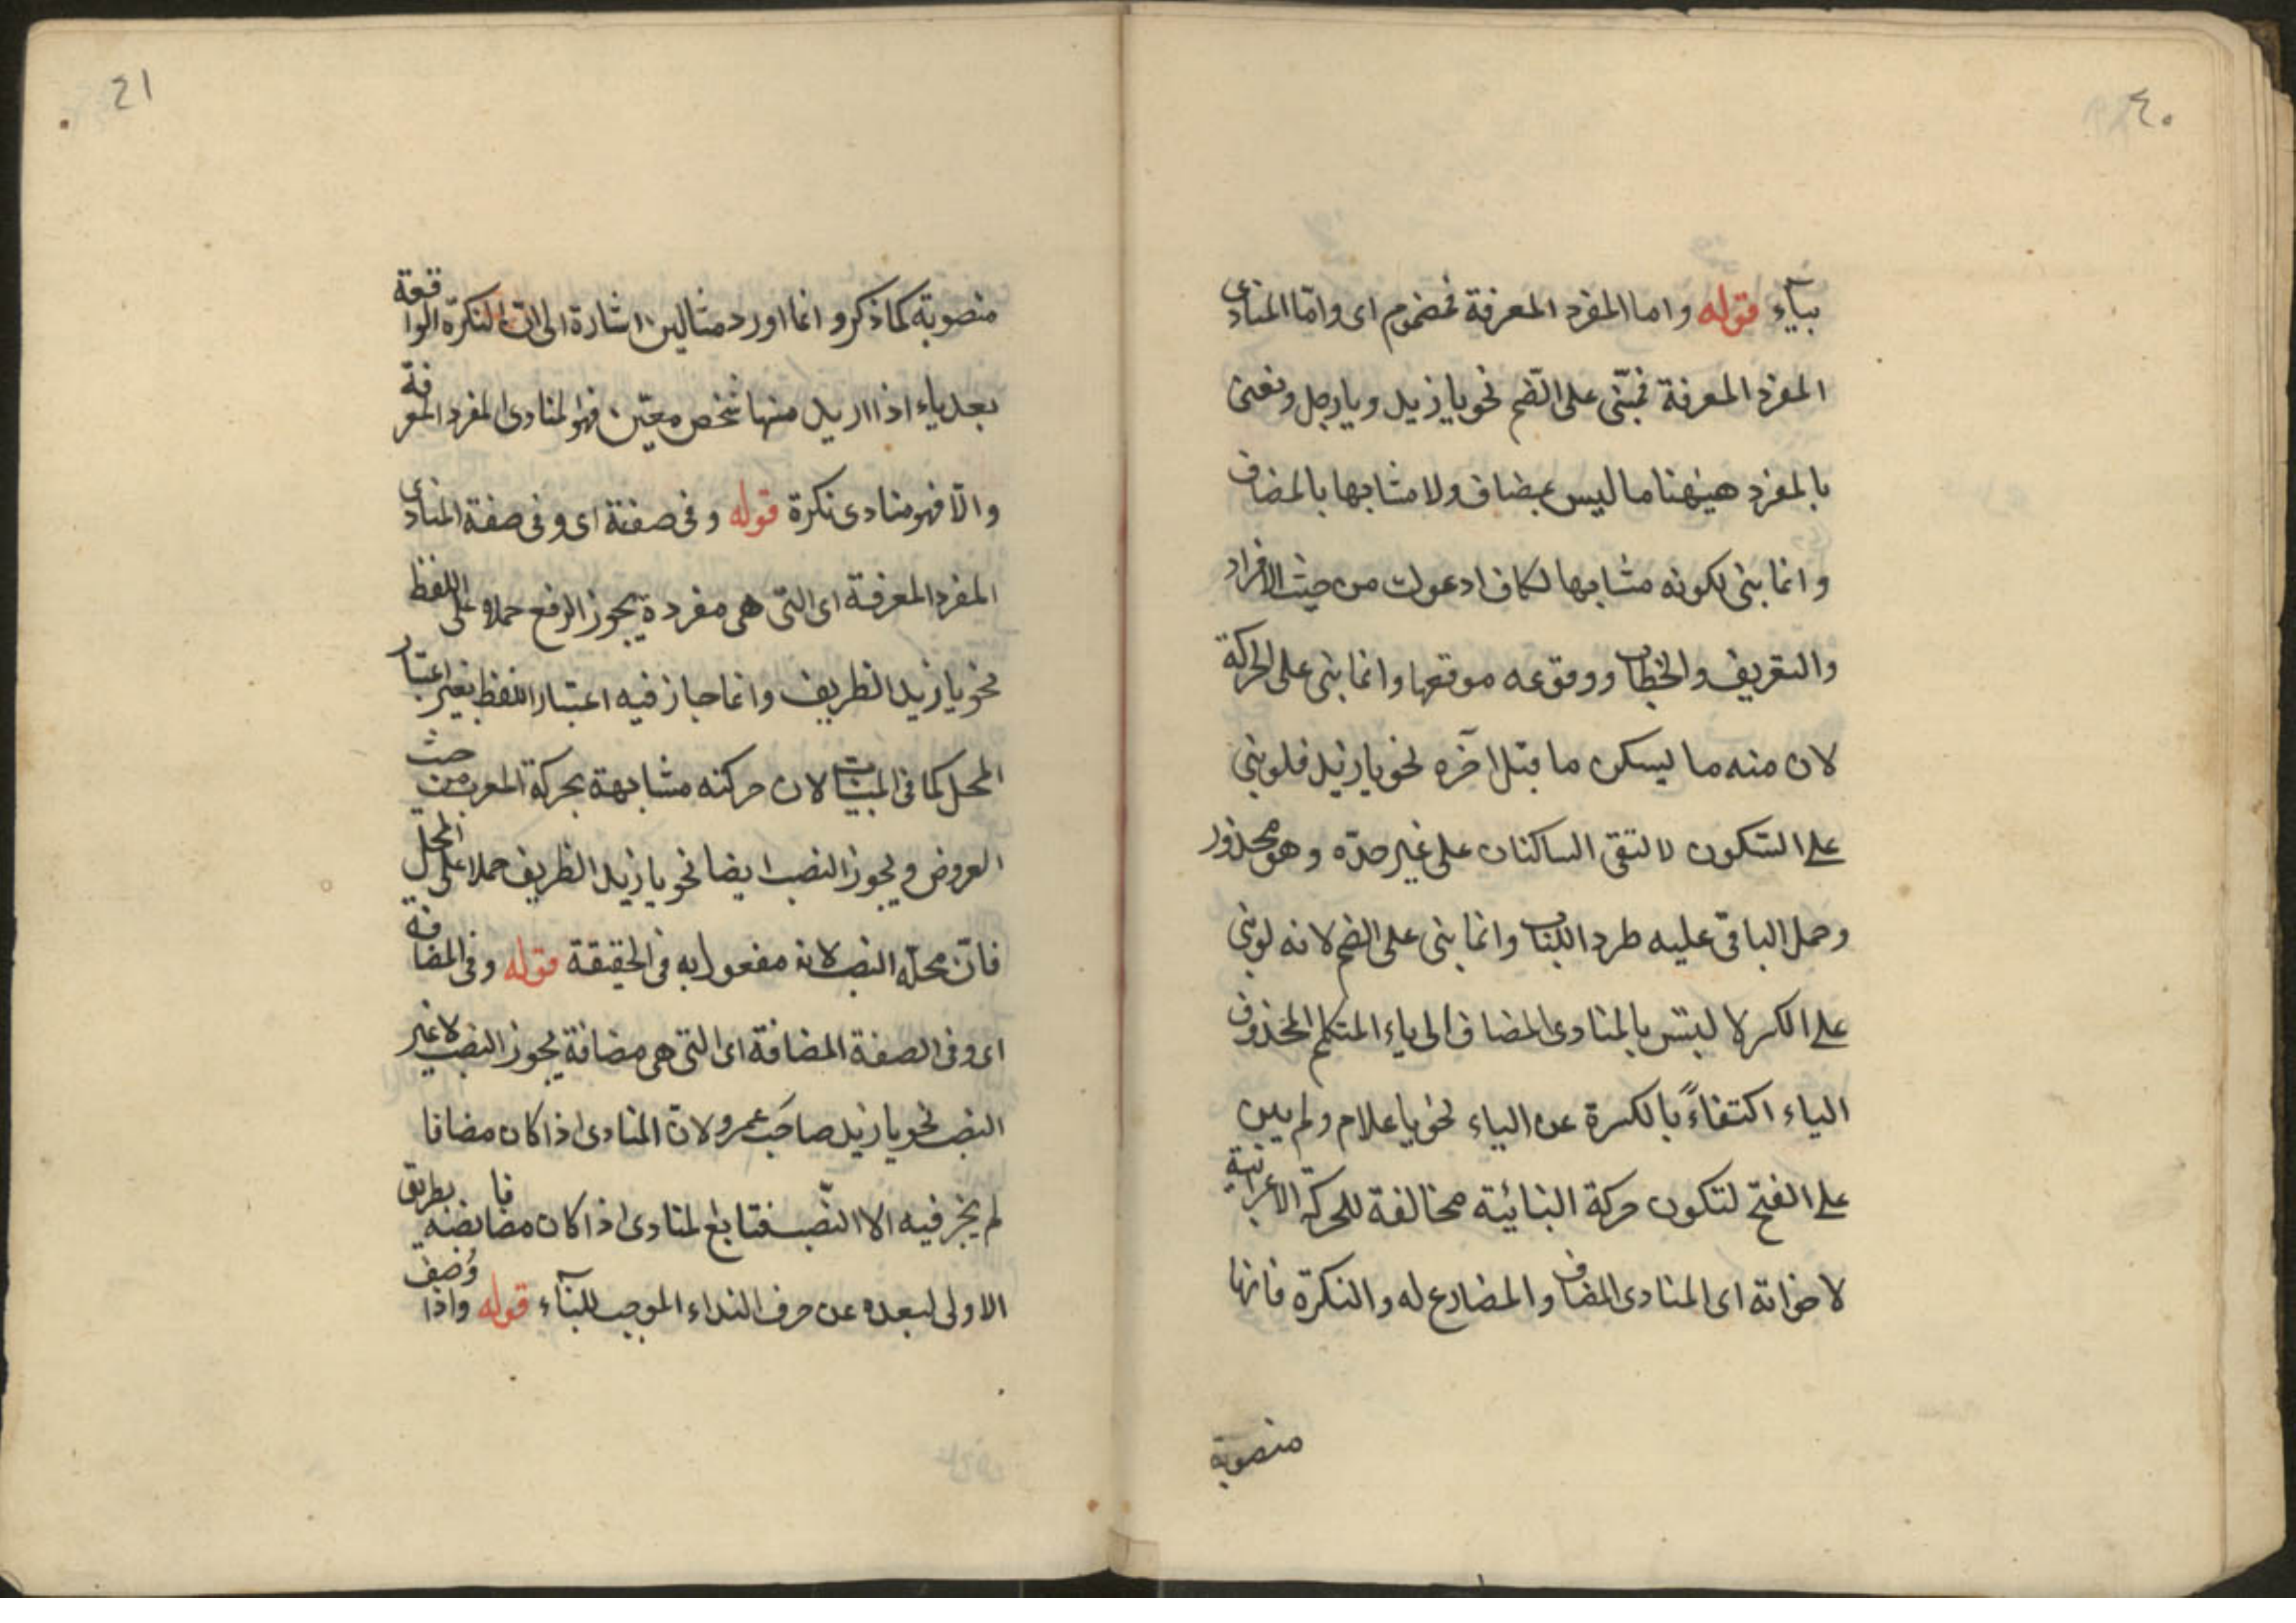 ٤٠
بياء قوله واما المفرد المعرفة فمضموم اى وامّا المنادى
المفرد المعرفة فمبنى على الضم نحو يا زيد ويا رجل ونعنى
بالمفرد هيهنا ما ليس بمضاف ولا مشابها بالمضاف
وانما بنى لكونه مشابها لكاف ادعوك من حيث الافراد
والتعريف والخطاب ووقوعه موقعها وانما بنى على الحركة
لان منه ما يسكن ما قبل آخره نحو يا زيد فلو بنى
على السّكون لالتقى الساكنان على غير حدّه وهو محذور
وحمل الباقى عليه طردا للباب وانما بنى على الضم لانه لو بنى
على الكسر لالبتس بالمنادى المضاف الى ياء المتكلم المحذوف
الياء اكتفاءً بالكسرة عن الياء نحو يا غلام ولم يبن
على الفتح لتكون حركة البنائية مخالفة للحركة الاعرابية
لاخواته اى المنادى المضاف والمضارع له والنكرة فانها
منصوبة
٤١
منصوبة كما ذكر وانما اورد مثالين اشارة الى ان النكرة الواقعة
بعد ياء اذا اريد منها شخص معيّن فهو المنادى المفرد المعرفة
والّا فهو منادى نكرة قوله وفى صفته اى وفى صفة المنادى
المفرد المعرفة اى التى هى مفردة يجوز الرفع حملا على اللفظ
نحو يا زيد الظريف وانما جاز فيه اعتبار اللفظ بغير اعتبار
المحل كما فى المبنيات لان حركته مشابهة بحركة المعرب من حيث
العروض ويجوز النصب ايضا نحو يا زيد الظريف حملا على المحل
فانّ محلّه النصب لانه مفعول به فى الحقيقة قوله وفى المضافة
اى وفى الصفة المضافة اى التى هى مضافة يجوز النصب لا غير
النصب نحو يا زيد صاحب عمرو لان المنادى اذا كان مضافا
لم يجز فيه الا النّصب فتابع المنادى اذا كان مضافا نصبه بطريق
الاولى لبعده عن حرف النداء الموجب للبنآء قوله واذا وُصف